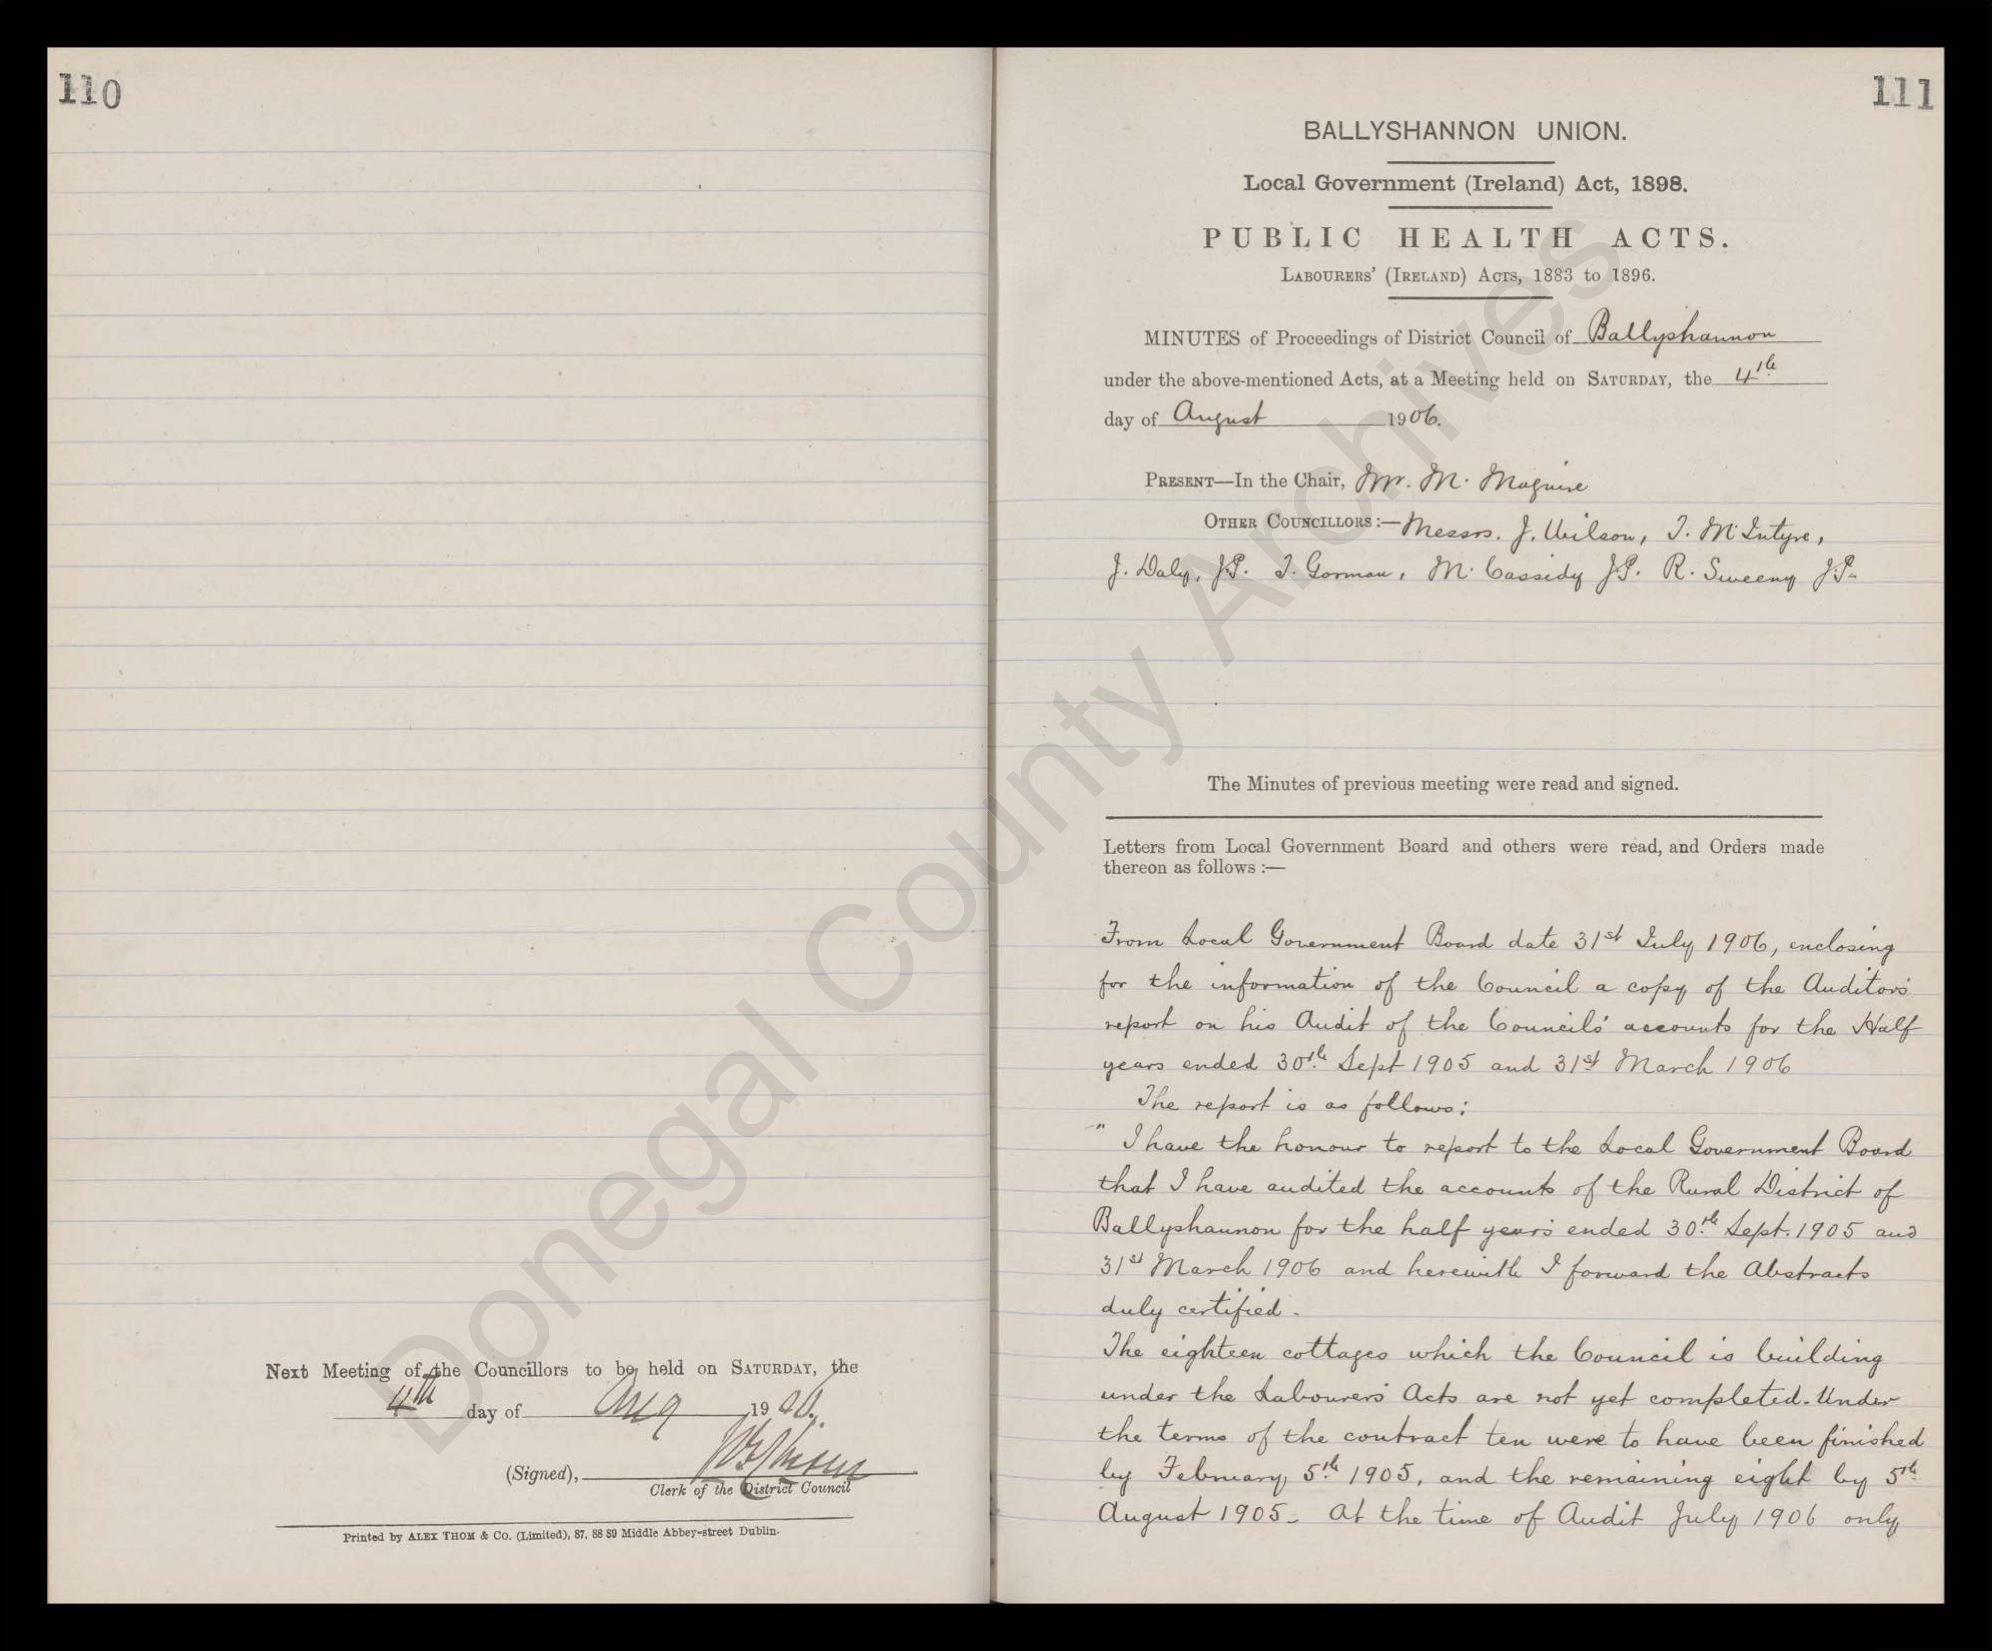 110
Next Meeting of the Councillors to be held on SATURDAY, the
4th day of Aug 1906.
(Signed),
Clerk of the District Council
Printed by ALEX THOM & CO. (Limited), 87, 88 89 Middle Abbey-street Dublin.
111
BALLYSHANNON UNION.
Local Government (Ireland) Act, 1898.
PUBLIC HEALTH ACTS.
LABOURERS' (IRELAND) ACTS, 1883 to 1896.
MINUTES of Proceedings of District Council of Ballyshannon
under the above-mentioned Acts, at a Meeting held on SATURDAY, the 4th
day of August 1906.
PRESENT—In the Chair, Mr. M. Maguire
OTHER COUNCILLORS:—Messrs. J. Wilson, T. McIntyre,
J. Daly, J.P. T. Gorman, M. Cassidy J.P. R. Sweeny J.P.
The Minutes of previous meeting were read and signed.
Letters from Local Government Board and others were read, and Orders made
thereon as follows :—
From Local Government Board date 31st July 1906, enclosing
for the information of the Council a copy of the Auditors'
report on his Audit of the Councils' accounts for the Half
years ended 30th Sept 1905 and 31st March 1906
The report is as follows:
" I have the honour to report to the Local Government Board
that I have audited the accounts of the Rural District of
Ballyshannon for the half years ended 30th Sept. 1905 and
31st March 1906 and herewith I forward the Abstracts
duly certified.
The eighteen cottages which the Council is building
under the Labourers' Acts are not yet completed. Under
the terms of the contract ten were to have been finished
by February 5th 1905, and the remaining eight by 5th
August 1905. At the time of Audit July 1906 only
Donegal County Archives